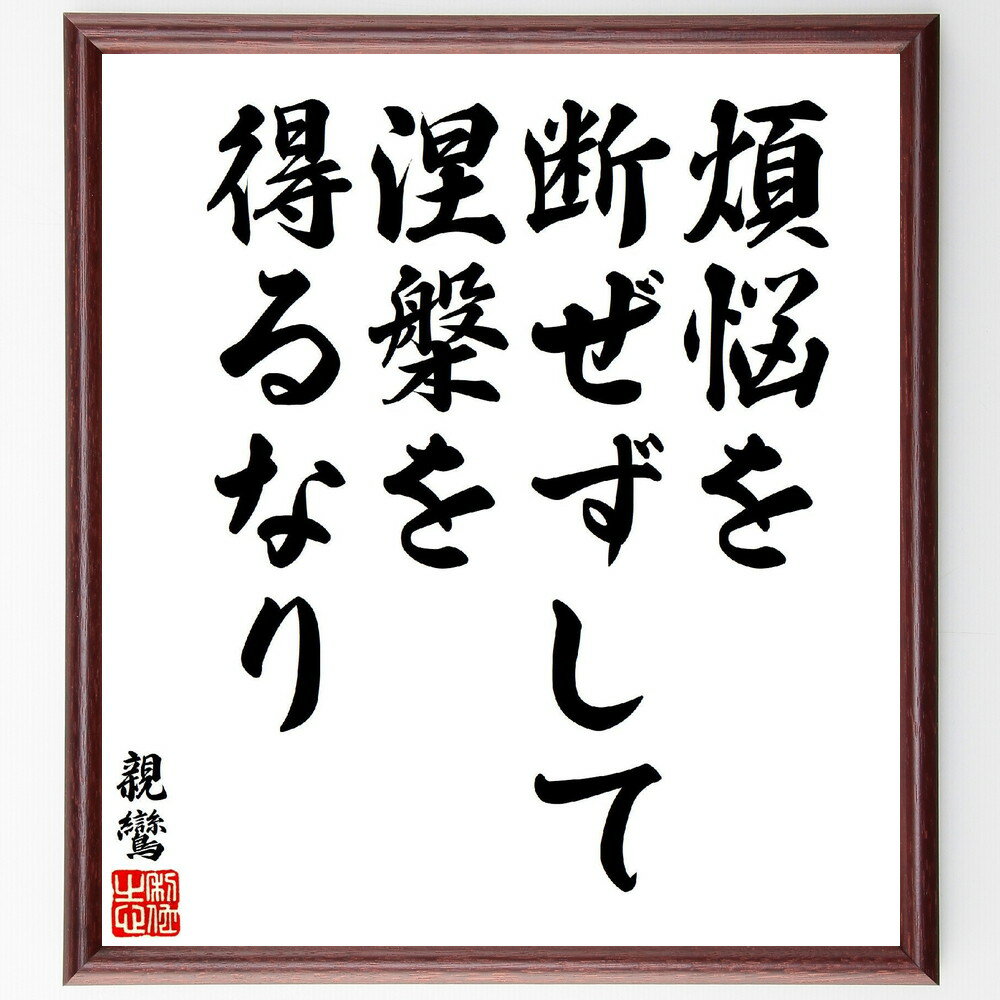 煩悩を
断ぜずして
涅槃を
得るなり
親鸞